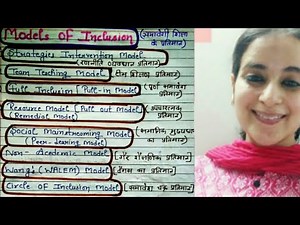 Models Of Inclusion (समावेशी शिक्षा के प्रतिमान)
Strategies Intervention Model
(रणनीति व्यवधान प्रतिमान)
Team Teaching Model (टीम शिक्षण प्रतिमान)
Full Inclusion (Pull-in Model) (पूर्ण समावेशी प्रतिमान)
Resource Model (Pull out model)
(Remedial Model)
Social Mainstreaming Model
(Peer-Learning Model)
Non-Academic Model (गैर शैक्षणिक प्रतिमान)
Wang's (WALEM) Model
Circle Of Inclusion Model (समावेशी चक्र प्रतिमान)